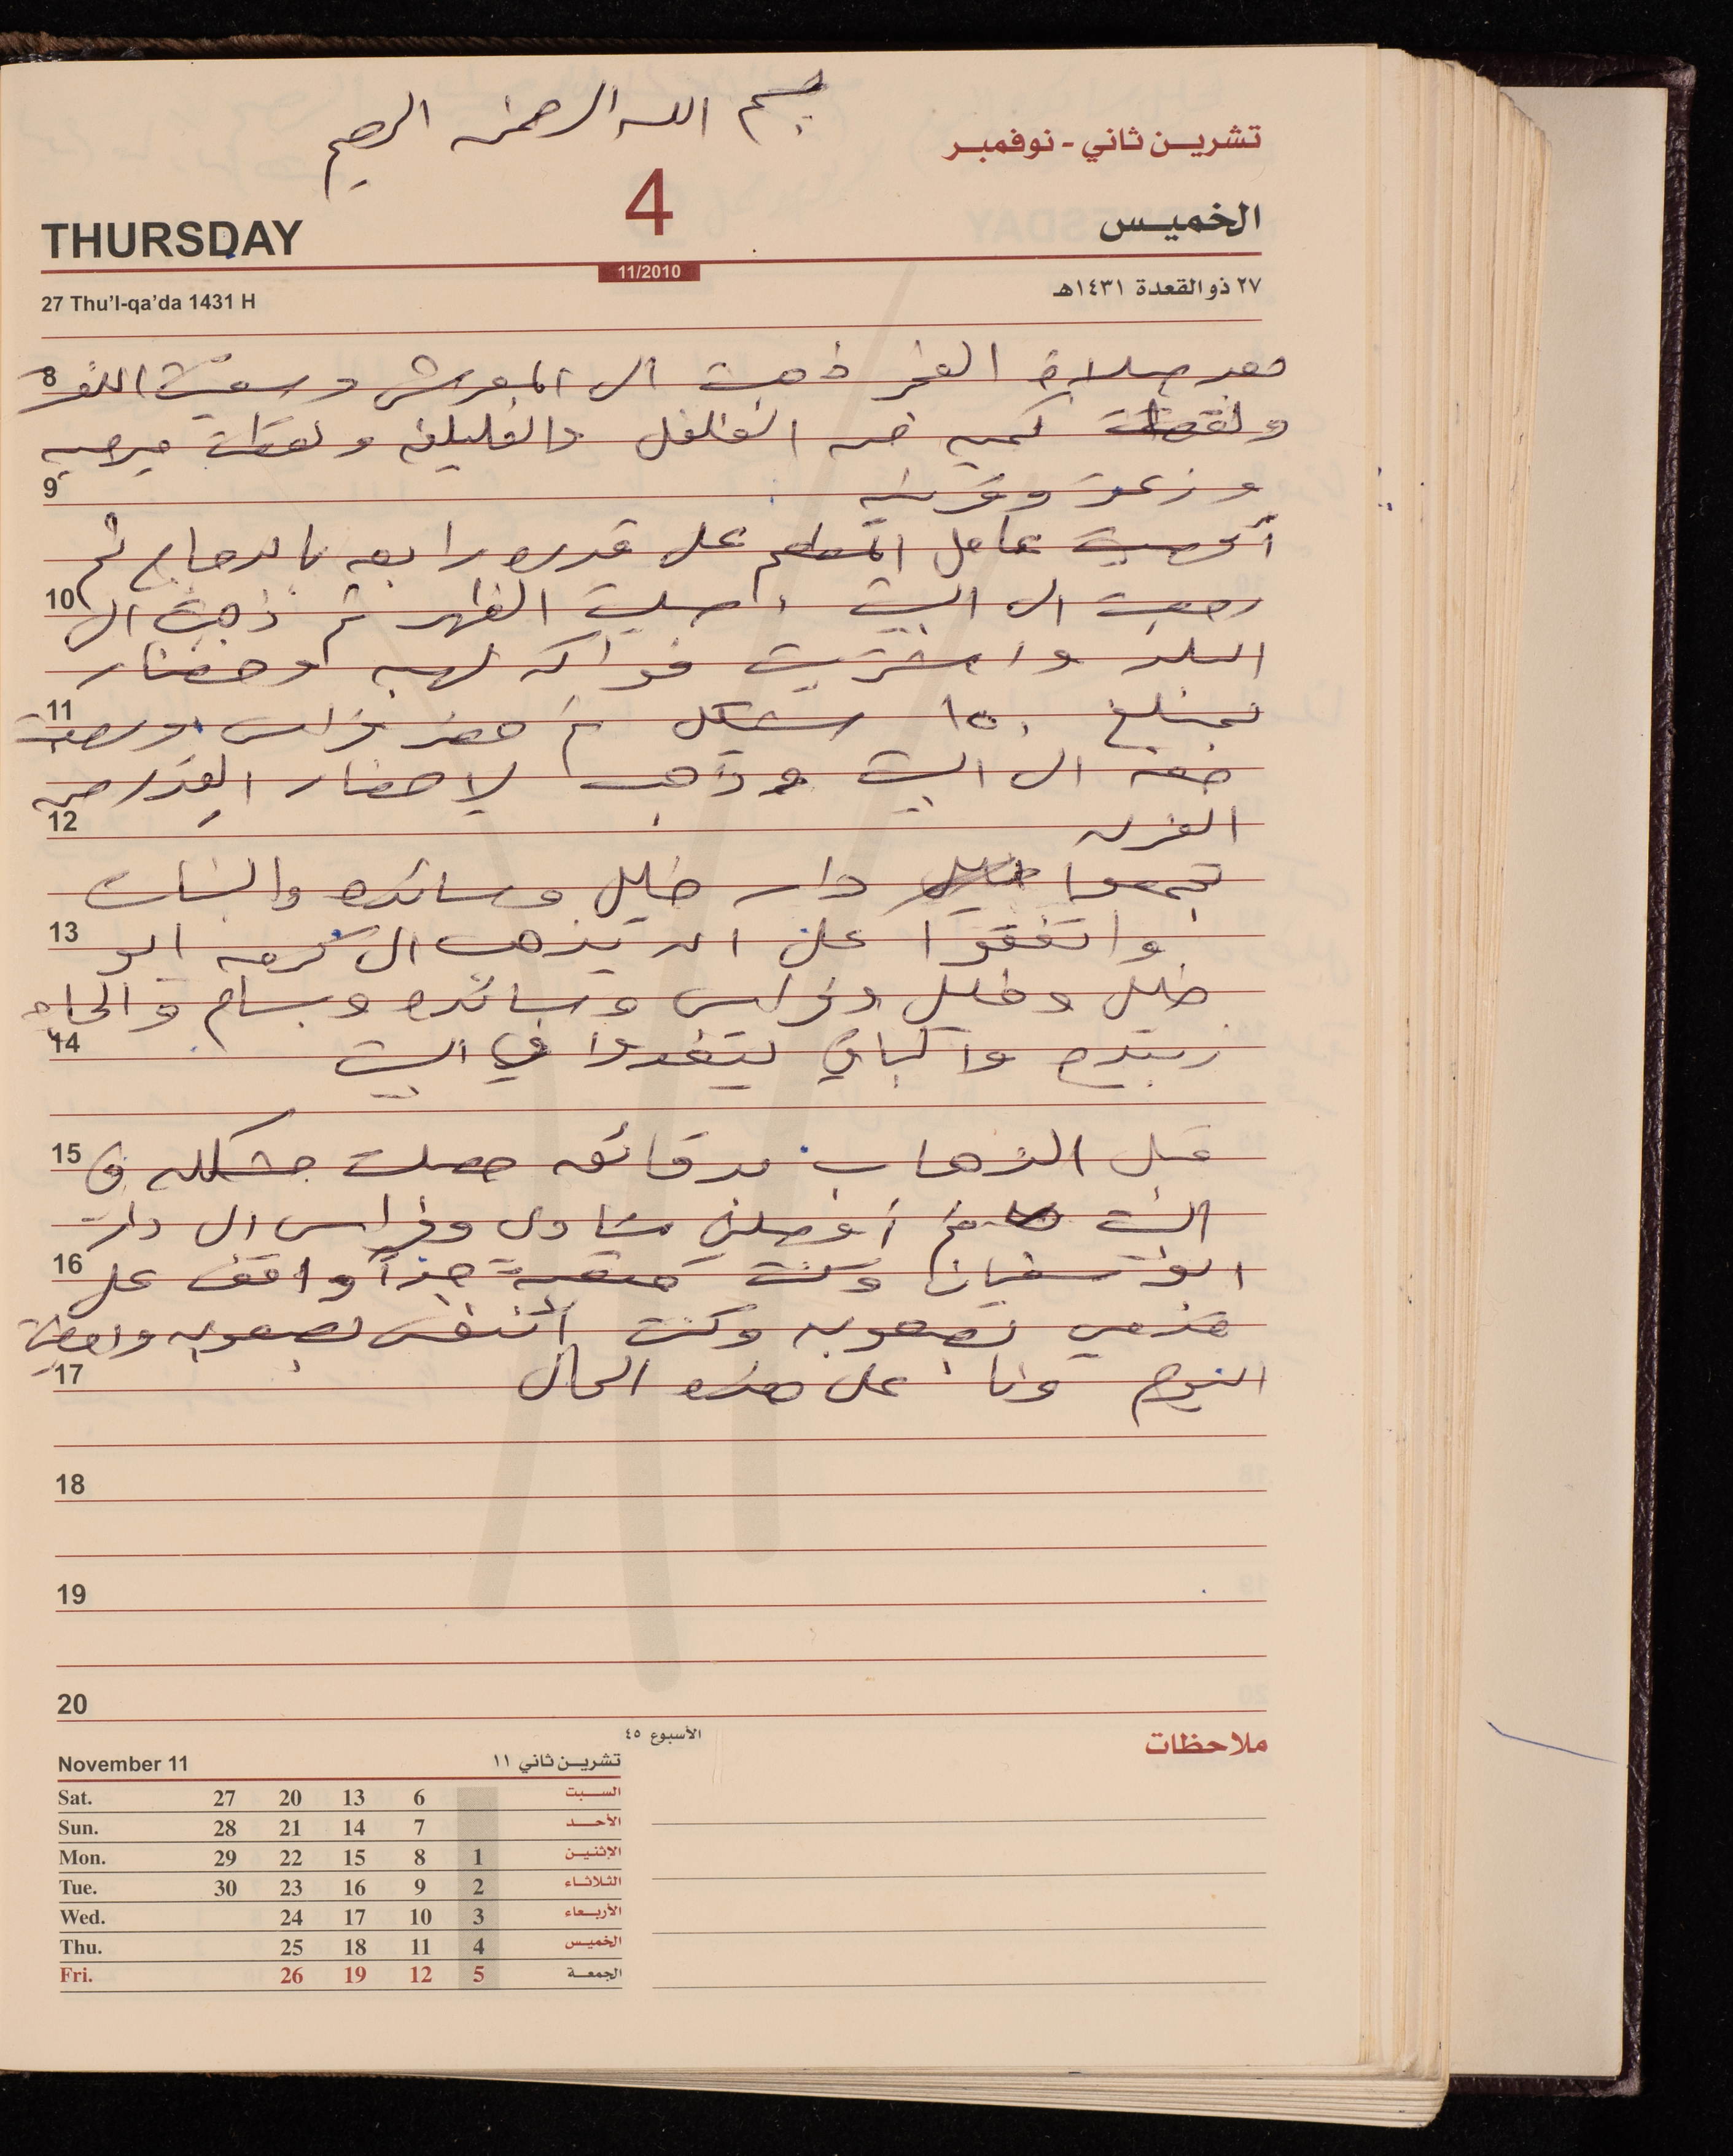 بسم الله الرحمن الرحيم
تشرين ثاني - نوفمبر
THURSDAY 4 الخميس
11/2010
27 Thu'l-qa'da 1431 H ٢٧ ذو القعدة ١٤٣١هـ
بعد صلاة الفجر ذهبت الى المعرش وسقيت
8
ولقطت كميه من الفلفل والفليفله ولقطت ميرميه
9
وزعتر
أوصيت عامل المطعم على قدره رابعه بالدجاج ثم
10
رجعت الى البيت وصليت الظهر ثم ذهبت الى
البلد واشتريت فواكه لهيه وخضار
11
بمبلغ ١٥٠ شيكل ثم حضر فراس ورجعت
معه الى البيت وذهب لاحضار القدره من
12
الفرن
تجمعوا دار خليل وسائده والبنات
13
واتفقوا على ان يذهب الى كرمه ابو
خليل وخليل وفراس وسائده وبسام والحاجه
14
والباقي ليتغدوا في البيت
15
قبل الذهاب بدقائق حصلت مشكله في
البيت ثم أوصلني شادي وفراس الى دار
16
ابو سفيان وكنت متعبة جداً واقف على
قدمي بصعوبه وكنت أتنفس بصعوبه
17
النوم وانا على هذه الحال
18
19
20
ملاحظات
الأسبوع ٤٥
November 11 تشرين ثاني ١١
Sat. 27 20 13 6 السبت
Sun. 28 21 14 7 الأحد
Mon. 29 22 15 8 1 الإثنين
Tue. 30 23 16 9 2 الثلاثاء
Wed. 24 17 10 3 الأربعاء
Thu. 25 18 11 4 الخميس
Fri. 26 19 12 5 الجمعة